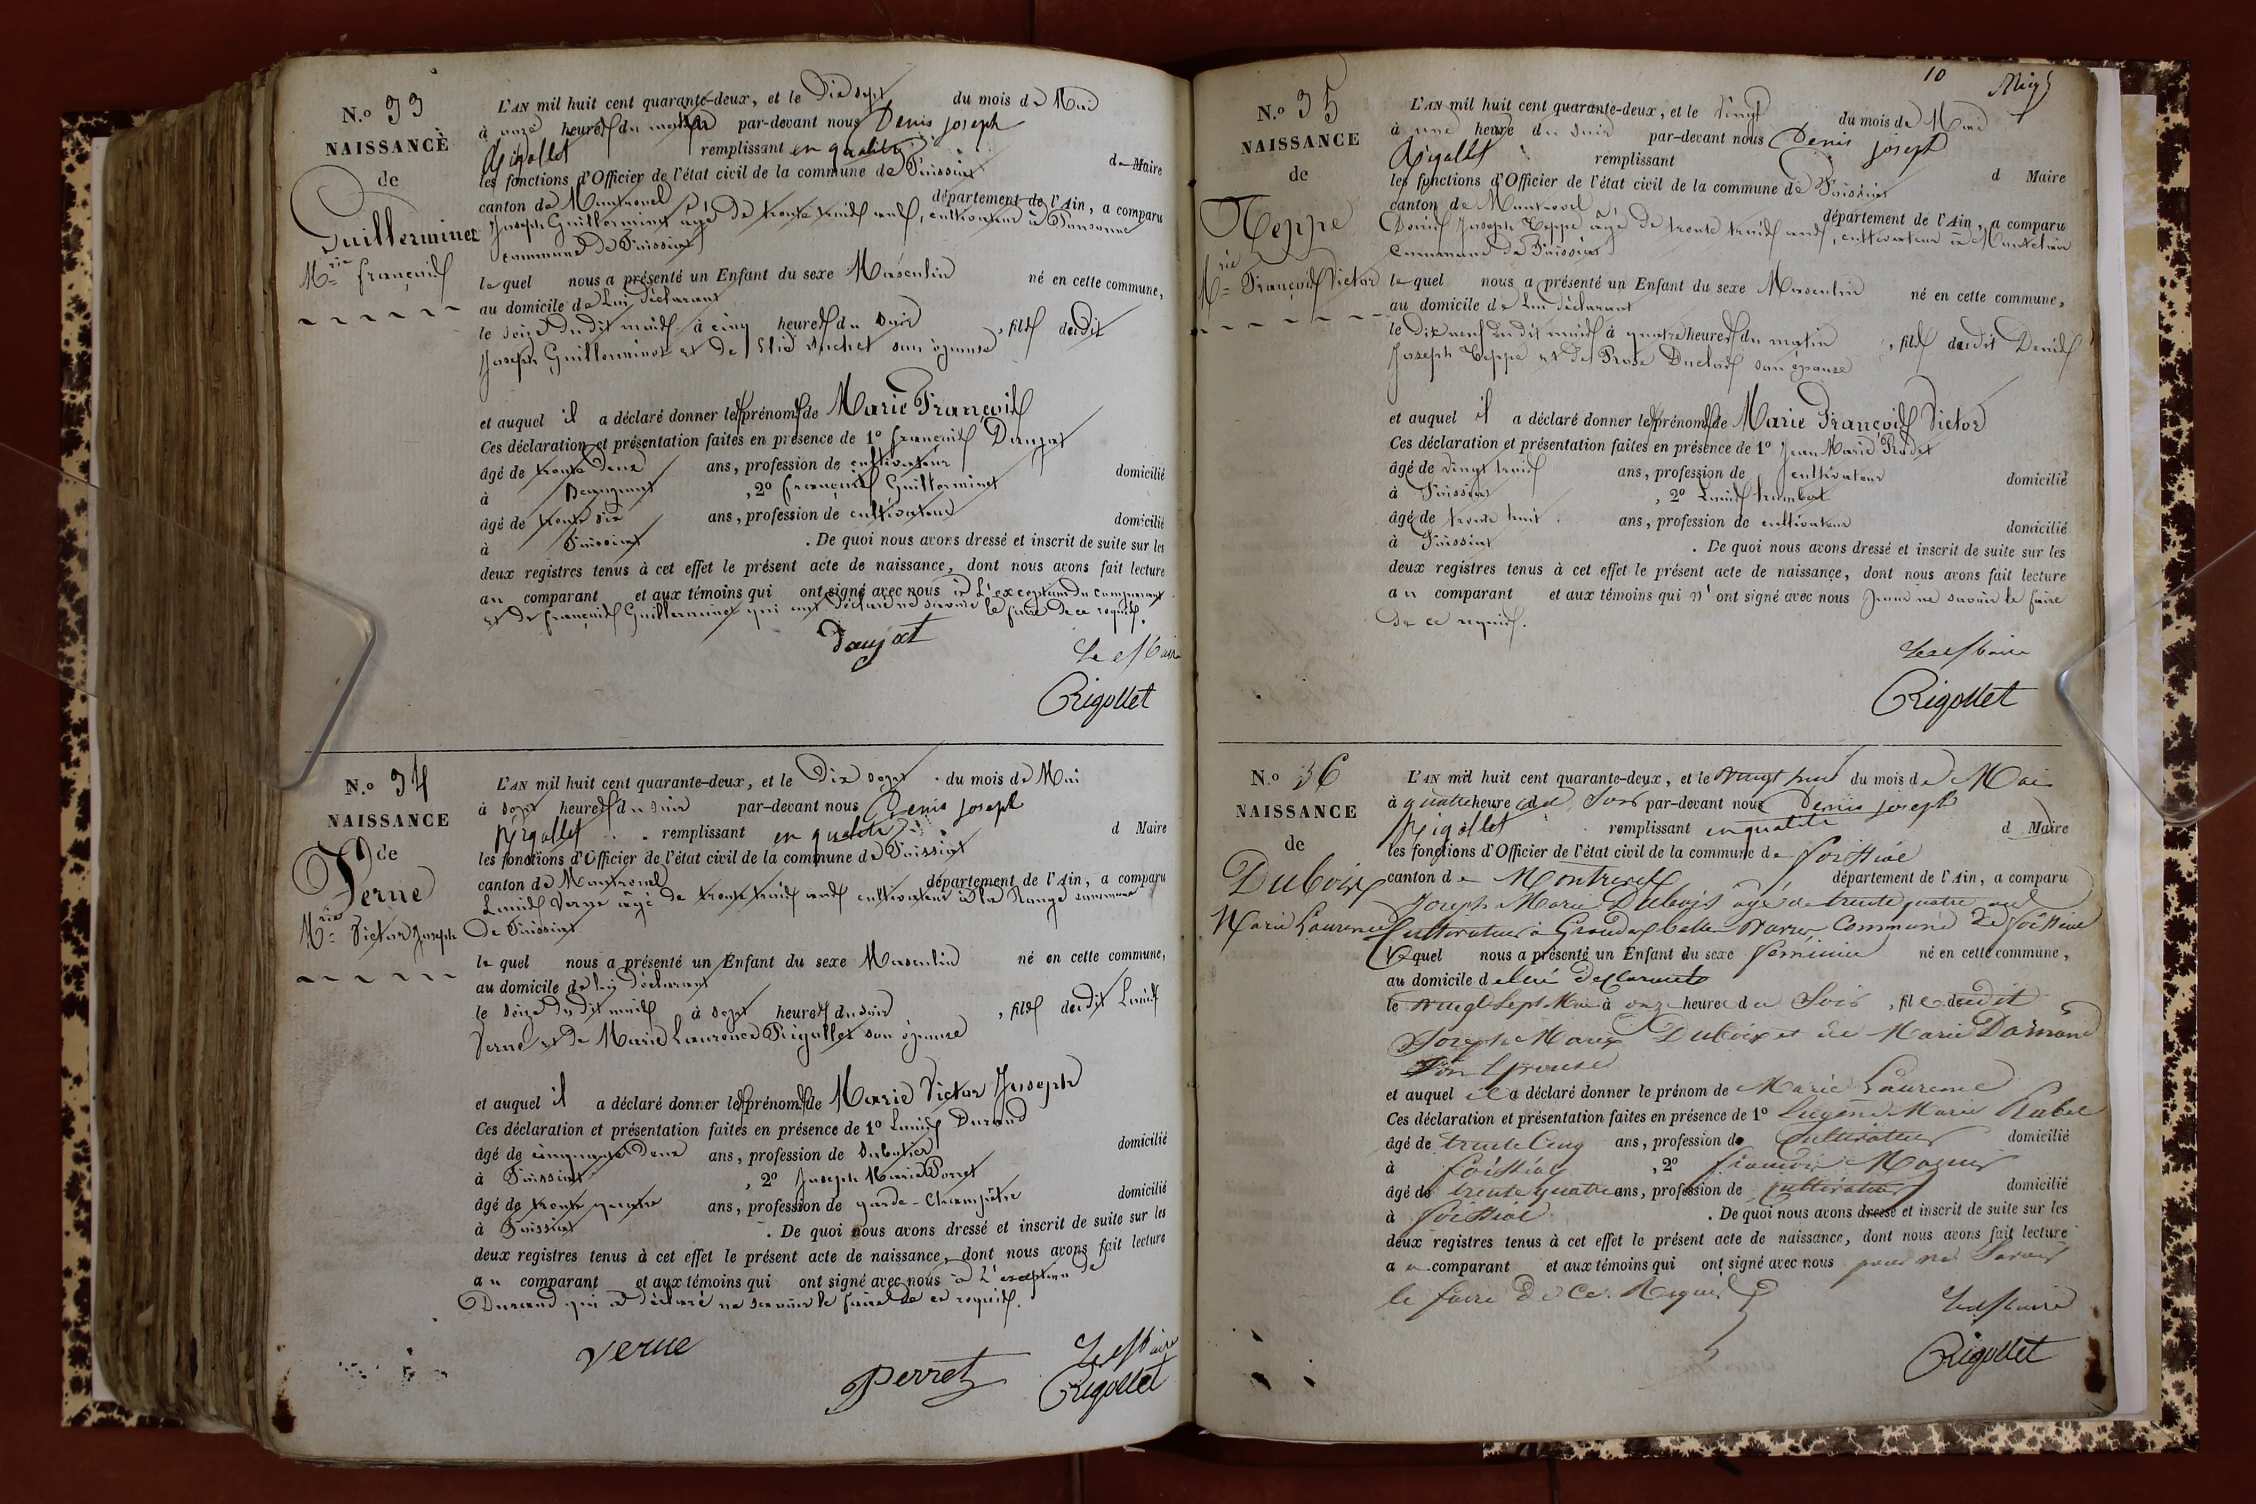 N.o 33
NAISSANCE
de
Guillerminet
M.rie françois
L'AN mil huit cent quarante-deux, et le Dix sept du mois de Mai
à onze heures du matin par-devant nous Denis joseph
Rigollet remplissant en qualité de Maire
les fonctions d'Officier de l'état civil de la commune de Foissiat
canton de Montrevel département de l'Ain, a comparu
Joseph Guillerminet agé de trente trois ans, cultivateur à
commune de Foissiat
le quel nous a présenté un Enfant du sexe Masculin né en cette commune,
au domicile de Lui déclarant
le seize du dit mois à cinq heures du soir, fils dudit
Joseph Guillerminet et de son épouse
et auquel il a déclaré donner les prénoms de Marie François
Ces déclaration et présentation faites en présence de 1o françois Daujat
âgé de trente deux ans, profession de cultivateur domicilié
à , 2o françois Guillerminet
âgé de trente six ans, profession de cultivateur domicilié
à Foissiat . De quoi nous avons dressé et inscrit de suite sur les
deux registres tenus à cet effet le présent acte de naissance, dont nous avons fait lecture
au comparant et aux témoins qui ont signé avec nous à L'exception du comparant
et de françois Guillerminet qui ont déclaré ne savoir le faire de ce requis.
Daujat
Le Maire
Rigollet
N.o 34
NAISSANCE
de
Verne
M.rie Victor Joseph
L'AN mil huit cent quarante-deux, et le Dix sept du mois de Mai
à sept heures du soir par-devant nous Denis joseph
Rigollet remplissant en qualité d Maire
les fonctions d'Officier de l'état civil de la commune de Foissiat
canton de Montrevel département de l'Ain, a comparu
Louis Verne âgé de trente trois ans cultivateur à la commune
de Foissiat
le quel nous a présenté un Enfant du sexe Masculin né en cette commune,
au domicile de lui déclarant
le seize du dit mois à sept heures du soir, fils dudit Louis
Verne et de Marie Laurence Rigollet son épouse
et auquel il a déclaré donner les prénoms de Marie Victor Joseph
Ces déclaration et présentation faites en présence de 1o Louis Durand
âgé de cinquante deux ans, profession de sabotier domicilié
à Foissiat , 2o Joseph Marie Perret
âgé de trente quatre ans, profession de garde-Champêtre domicilié
à Foissiat . De quoi nous avons dressé et inscrit de suite sur les
deux registres tenus à cet effet le présent acte de naissance, dont nous avons fait lecture
au comparant et aux témoins qui ont signé avec nous à L'exception de
Durand qui a déclaré ne savoir le faire de ce requis.
Verne
Perret
Le Maire
Rigollet
10
N.o 35
NAISSANCE
de
Teppe
M.rie François Victor
L'AN mil huit cent quarante-deux, et le vingt du mois de Mai
à une heure du soir par-devant nous Denis joseph
Rigollet remplissant d Maire
les fonctions d'Officier de l'état civil de la commune de Foissiat
canton de Montrevel département de l'Ain, a comparu
Denis Joseph Teppe âgé de trente trois ans, cultivateur à
commune de Foissiat
le quel nous a présenté un Enfant du sexe Masculin né en cette commune,
au domicile de Lui déclarant
le Dix neuf du dit mois à quatre heures du matin, fils dudit Denis
Joseph Teppe et de Rose Duclos son épouse
et auquel il a déclaré donner les prénoms de Marie François Victor
Ces déclaration et présentation faites en présence de 1o Jean Marie
âgé de vingt trois ans, profession de cultivateur domicilié
à Foissiat , 2o Louis humbert
âgé de trente huit ans, profession de cultivateur domicilié
à Foissiat . De quoi nous avons dressé et inscrit de suite sur les
deux registres tenus à cet effet le présent acte de naissance, dont nous avons fait lecture
au comparant et aux témoins qui n'ont signé avec nous pour ne savoir le faire
de ce requis.
Le Maire
Rigollet
N.o 36
NAISSANCE
de
Dubois
Marie Laurence
L'AN mil huit cent quarante-deux, et le vingt huit du mois de Mai
à quatre heure du Soir par-devant nous Denis joseph
Rigollet remplissant en qualité d Maire
les fonctions d'Officier de l'état civil de la commune de foissiat
canton de Montrevel département de l'Ain, a comparu
Joseph Marie Dubois âgé de trente quatre ans
Cultivateur à commune de foissiat
Lequel nous a présenté un Enfant du sexe feminin né en cette commune,
au domicile de lui déclarant
le vingt sept Mai à onze heure du Soir, file dudit
Joseph Marie Dubois et de Marie
son Epouse
et auquel il a déclaré donner le prénom de Marie Laurence
Ces déclaration et présentation faites en présence de 1o Marie
âgé de trente cinq ans, profession de Cultivateur domicilié
à foissiat , 2o
âgé de trente quatre ans, profession de Cultivateur domicilié
à foissiat . De quoi nous avons dressé et inscrit de suite sur les
deux registres tenus à cet effet le présent acte de naissance, dont nous avons fait lecture
au comparant et aux témoins qui ont signé avec nous pour ne savoir
le faire de ce Requis
Le Maire
Rigollet